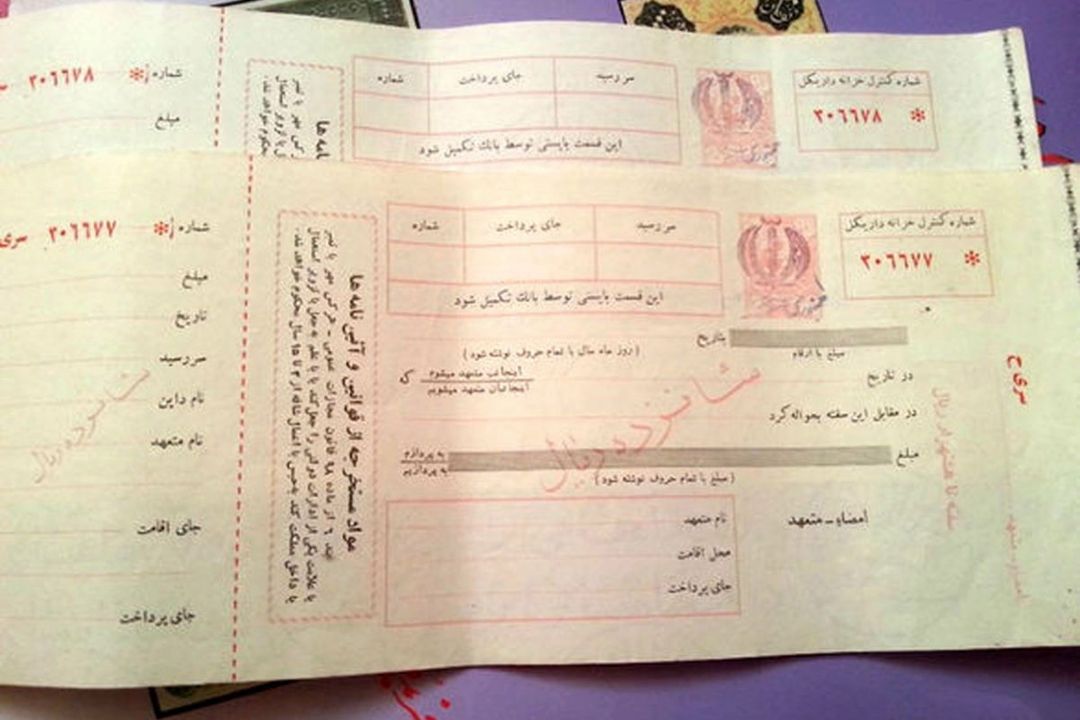 شماره ژ * ۲۰۶۶۷۸
مبلغ
شماره
جای پرداخت
سررسید
این قسمت بایستی توسط بانک تکمیل شود
شماره کنترل خزانه داریکل
* ۲۰۶۶۷۸
شماره ژ * ۲۰۶۶۷۷ سری
مبلغ
تاریخ
سررسید
نام داین
نام متعهد
جای اقامت
جای پرداخت
شانزده ریال
مواد مستخرجه از قوانین و آئین نامه ها
سررسید
جای پرداخت
شماره
این قسمت بایستی توسط بانک تکمیل شود
شماره کنترل خزانه داریکل
* ۲۰۶۶۷۷
بتاریخ
مبلغ با ارقام
( روز ماه سال با تمام حروف نوشته شود )
در تاریخ
اینجانب متعهد میشوم
اینجانبان متعهد میشویم
که
در مقابل این سفته بحواله کرد
شانزده ریال
مبلغ
به پردازم
به پردازیم
( مبلغ با تمام حروف نوشته شود )
امضاء - متعهد
نام متعهد
محل اقامت
جای پرداخت
سری ح
سفته تا هشتهزار ریال